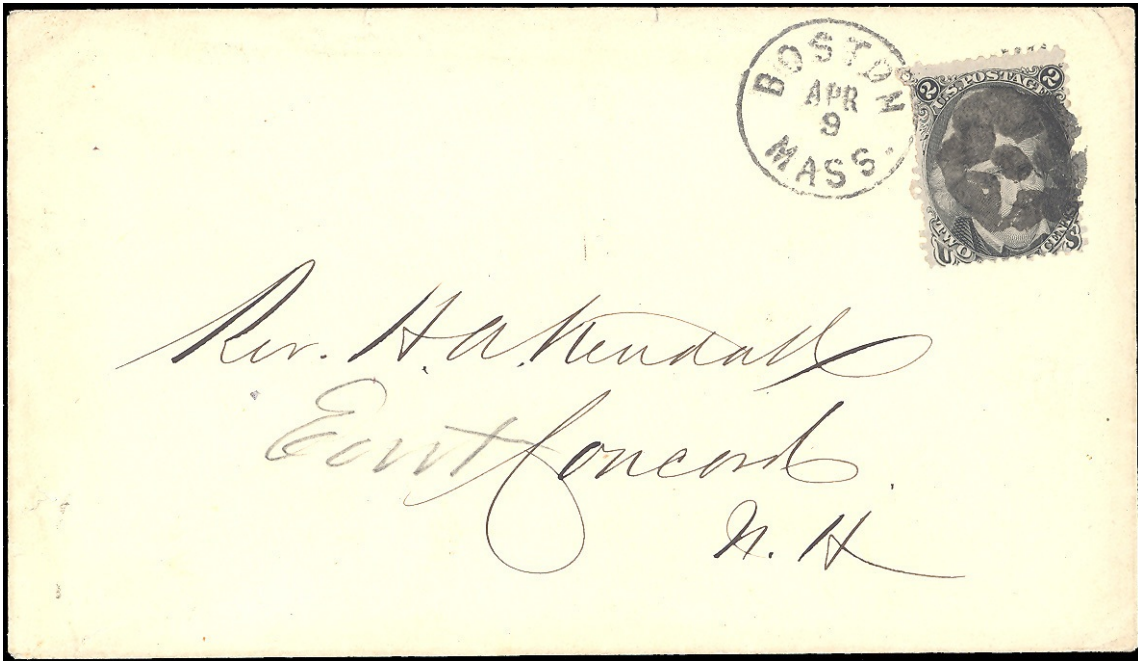 BOSTON
APR
9
MASS.
2 U.S. POSTAGE 2
TWO CENTS
U S
Rev. H. A. Kendall
East Concord
N. H